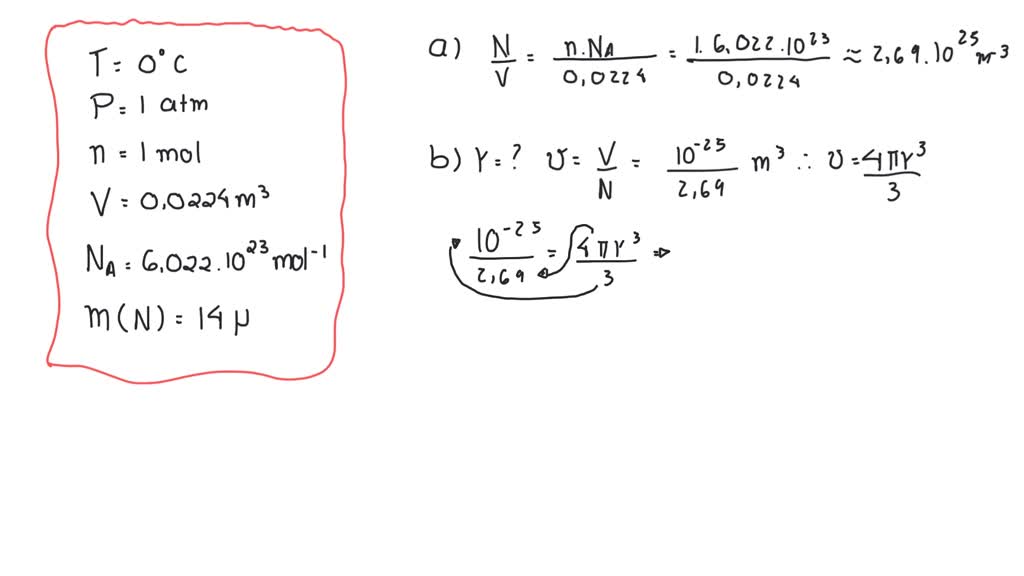 T = 0°C
P = 1 atm
n = 1 mol
V = 0,0224 m³
N_A = 6,022.10²³ mol⁻¹
m(N) = 14 μ
a) N/V = n.N_A/0,0224 = 1.6,022.10²³/0,0224 ≈ 2,69.10²⁵ m³
b) r = ? v = V/N = 10⁻²⁵/2,69 m³ ∴ v = 4πr³/3
10⁻²⁵/2,69 = 4πr³/3 ⇒